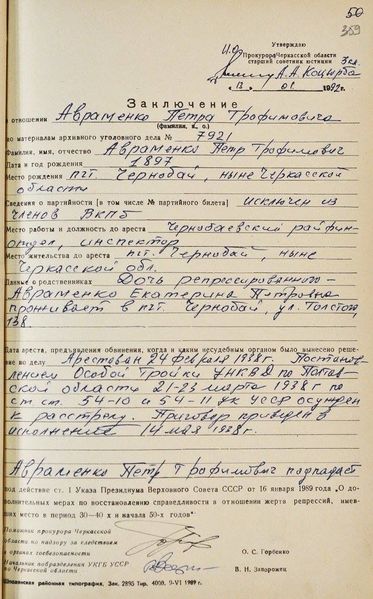 50
359
Утверждаю
И.О. Прокурора Черкасской области
старший советник юстиции 3 кл.
А.А. Коцюрба
" 13 " 01 1992г.
Заключение
в отношении Авраменко Петра Трофимовича
(фамилия, и., о.)
по материалам архивного уголовного дела № 7921
Фамилия, имя, отчество Авраменко Петр Трофимович
Дата и год рождения 1897
Место рождения пгт. Чернобай, ныне Черкасской
области
Сведения о партийности [в том числе № партийного билета] исключен из
членов ВКПб
Место работы и должность до ареста Чернобаевский райфин-
отдел, инспектор
Место жительства до ареста пгт. Чернобай, ныне
Черкасской обл.
Данные о родственниках Дочь репрессированного -
Авраменко Екатерина Петровна
проживает в пгт. Чернобай, ул. Толстого,
138.
Дата ареста, предъявления обвинения, когда и каким несудебным органом было вынесено реше-
ние по делу Арестован 24 февраля 1938г. Постанов-
лением Особой Тройки УНКВД по Полтав-
ской области 21-23 марта 1938г по
ст ст. 54-10 и 54-11 УК УССР осужден
к расстрелу. Приговор приведен в
исполнение 14 мая 1938г.
Авраменко Петр Трофимович подпадает
под действие ст. 1 Указа Президиума Верховного Совета СССР от 16 января 1989 года «О до-
полнительных мерах по восстановлению справедливости в отношении жертв репрессий, имев-
ших место в период 30—40-х и начала 50-х годов».
Помощник прокурора Черкасской
области по надзору за следствием
в органах госбезопасности О. С. Горбенко
Начальник подразделения УКГБ УССР
по Черкасской области В. Н. Запорожец
Шполянская районная типография, Зак. 2895 Тир. 4000, 9-VI 1989 г.